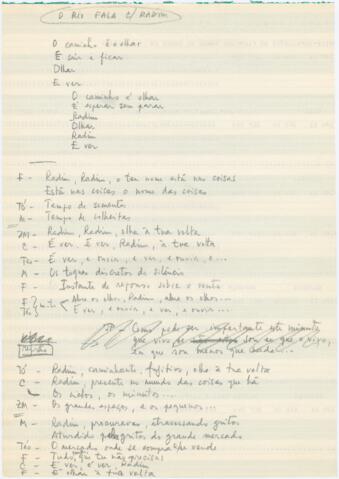 O RIO FALA C/ RADIM
O caminho é olhar
E sair e ficar
Olhar
E ver
O caminho é olhar
E esperar sem parar
Radim
Olhar
Radim
E ver
F - Radim, Radim, o teu nome está nas coisas
Está nas coisas o nome das coisas
Tó - Tempo de semente
M - Tempo de colheitas
ZM - Radim, Radim, olha à tua volta
C - E ver. E ver, Radim, à tua volta
Téo - E ver, e ouvir, e ver, e ouvir, e ...
M - Os toques discretos do silêncio
F - Instante de repouso sobre o vento
F
Téo
Abre os olhos, Radim, abre os olhos...
E ver, e ouvir, e ver, e ouvir...
Como pode ser importante este minuto
que vivo
em que sou menos que
Tó - Radim, caminhante, fugitivo, olha à tua volta
C - Radim, presente no mundo das coisas que há
Os medos, os minutos...
ZM - Os grandes espaços, e os pequenos...
M - Radim, procuravas, atravessando gritos
Aturdido gritos do grande mercado
Téo - O mercado onde se compra e vende
F - Tudo, que tu não precisas
C - E ver, e ver, Radim
F - E olhar à tua volta